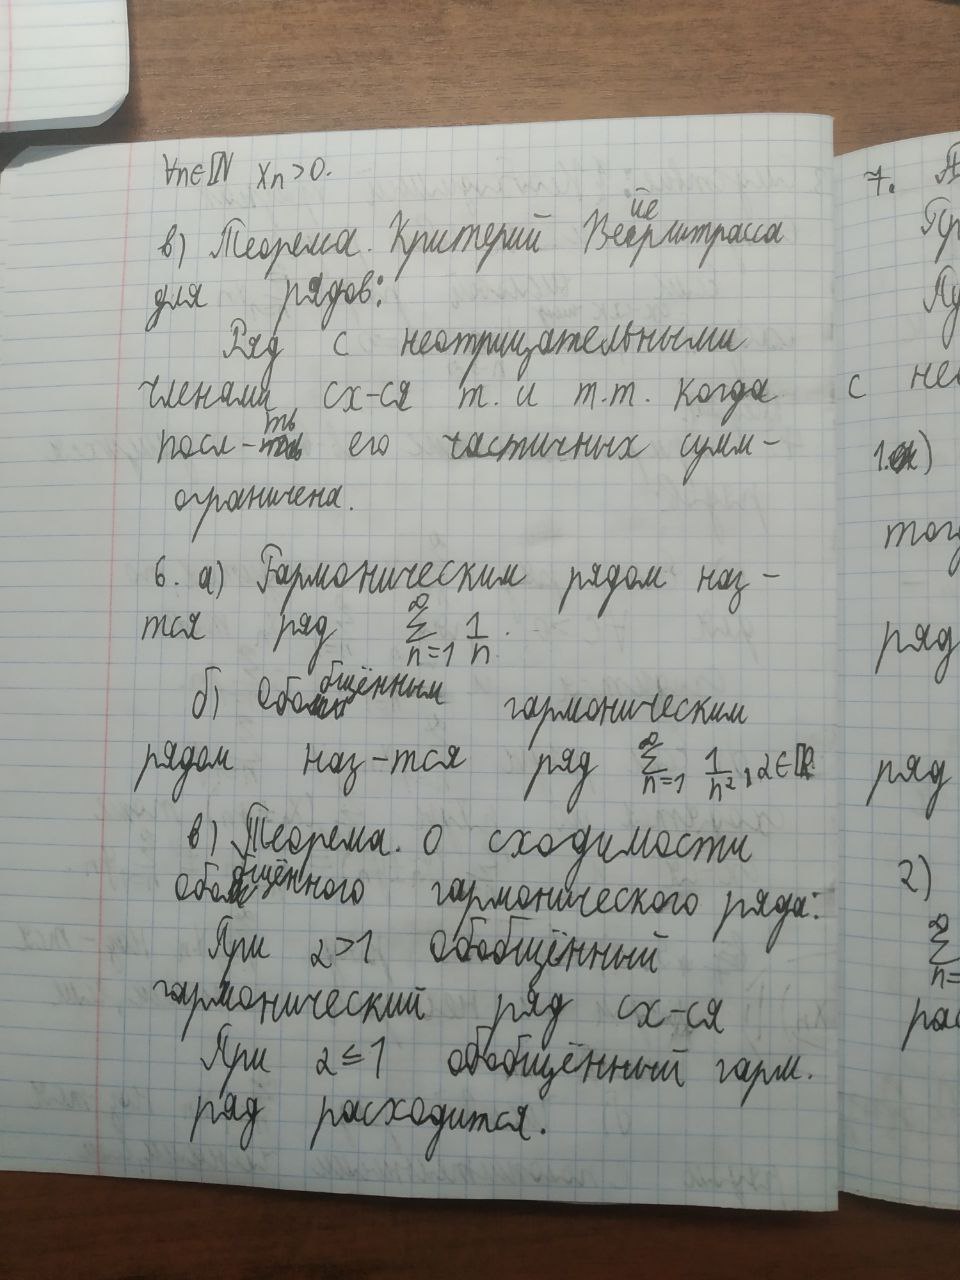 ∀n∈ℕ xₙ>0.
в) Теорема. Критерий Вейерштрасса
для рядов:
Ряд с неотрицательными
членами сх-ся т. и т.т. когда
посл-ть его частичных сумм-
ограничена.
6. а) Гармоническим рядом наз-
тся ряд ∑ₙ₌₁^∞ 1/n.
б) Обобщённым гармоническим
рядом наз-тся ряд ∑ₙ₌₁^∞ 1/n^α, α∈ℝ
в) Теорема. О сходимости
обобщённого гармонического ряда:
При α>1 обобщённый
гармонический ряд сх-ся
При α≤1 обобщённый гарм.
ряд расходится.
7.
с
1.
ряд
ряд
2)
∑ₙ₌^∞